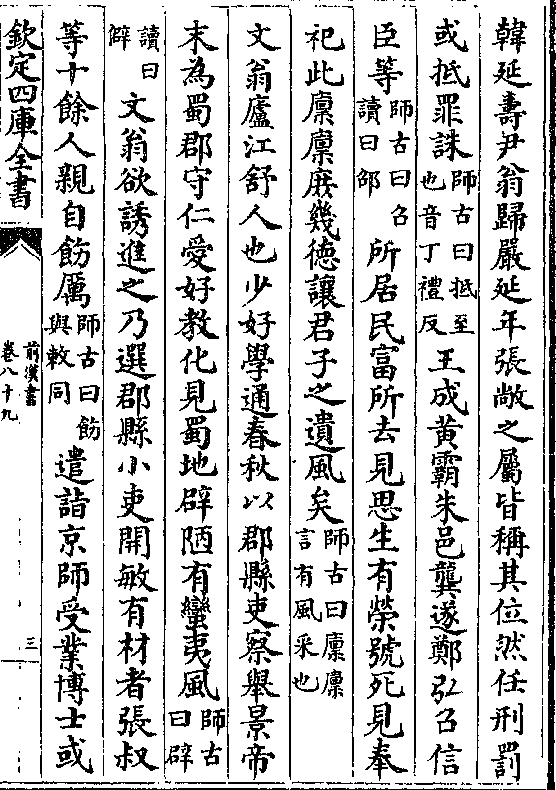 韓延壽尹翁歸嚴延年張敞之屬皆稱其位然任刑罰
或抵罪誅師古曰抵至也音丁禮反王成黄霸朱邑龔遂鄭弘召信
臣等師古曰召讀曰邵所居民富所去見思生有榮號死見奉
祀此廩廩庶幾徳讓君子之遺風矣師古曰廩廩言有風采也
文翁廬江舒人也少好學通春秋以郡縣吏察舉景帝
末為蜀郡守仁愛好教化見蜀地辟陋有蠻夷風師古曰辟
讀曰僻文翁欲誘進之乃選郡縣小吏開敏有材者張叔
等十餘人親自飭厲師古曰飭與敕同遣詣京師受業博士或
欽定四庫全書
前漢書
卷八十九
三